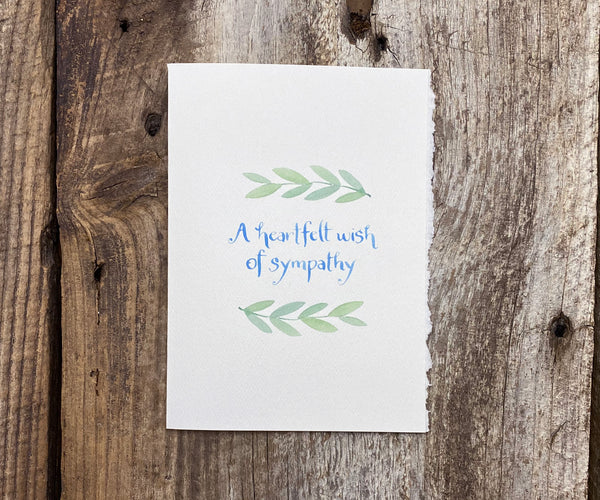 A heartfelt wish
of sympathy